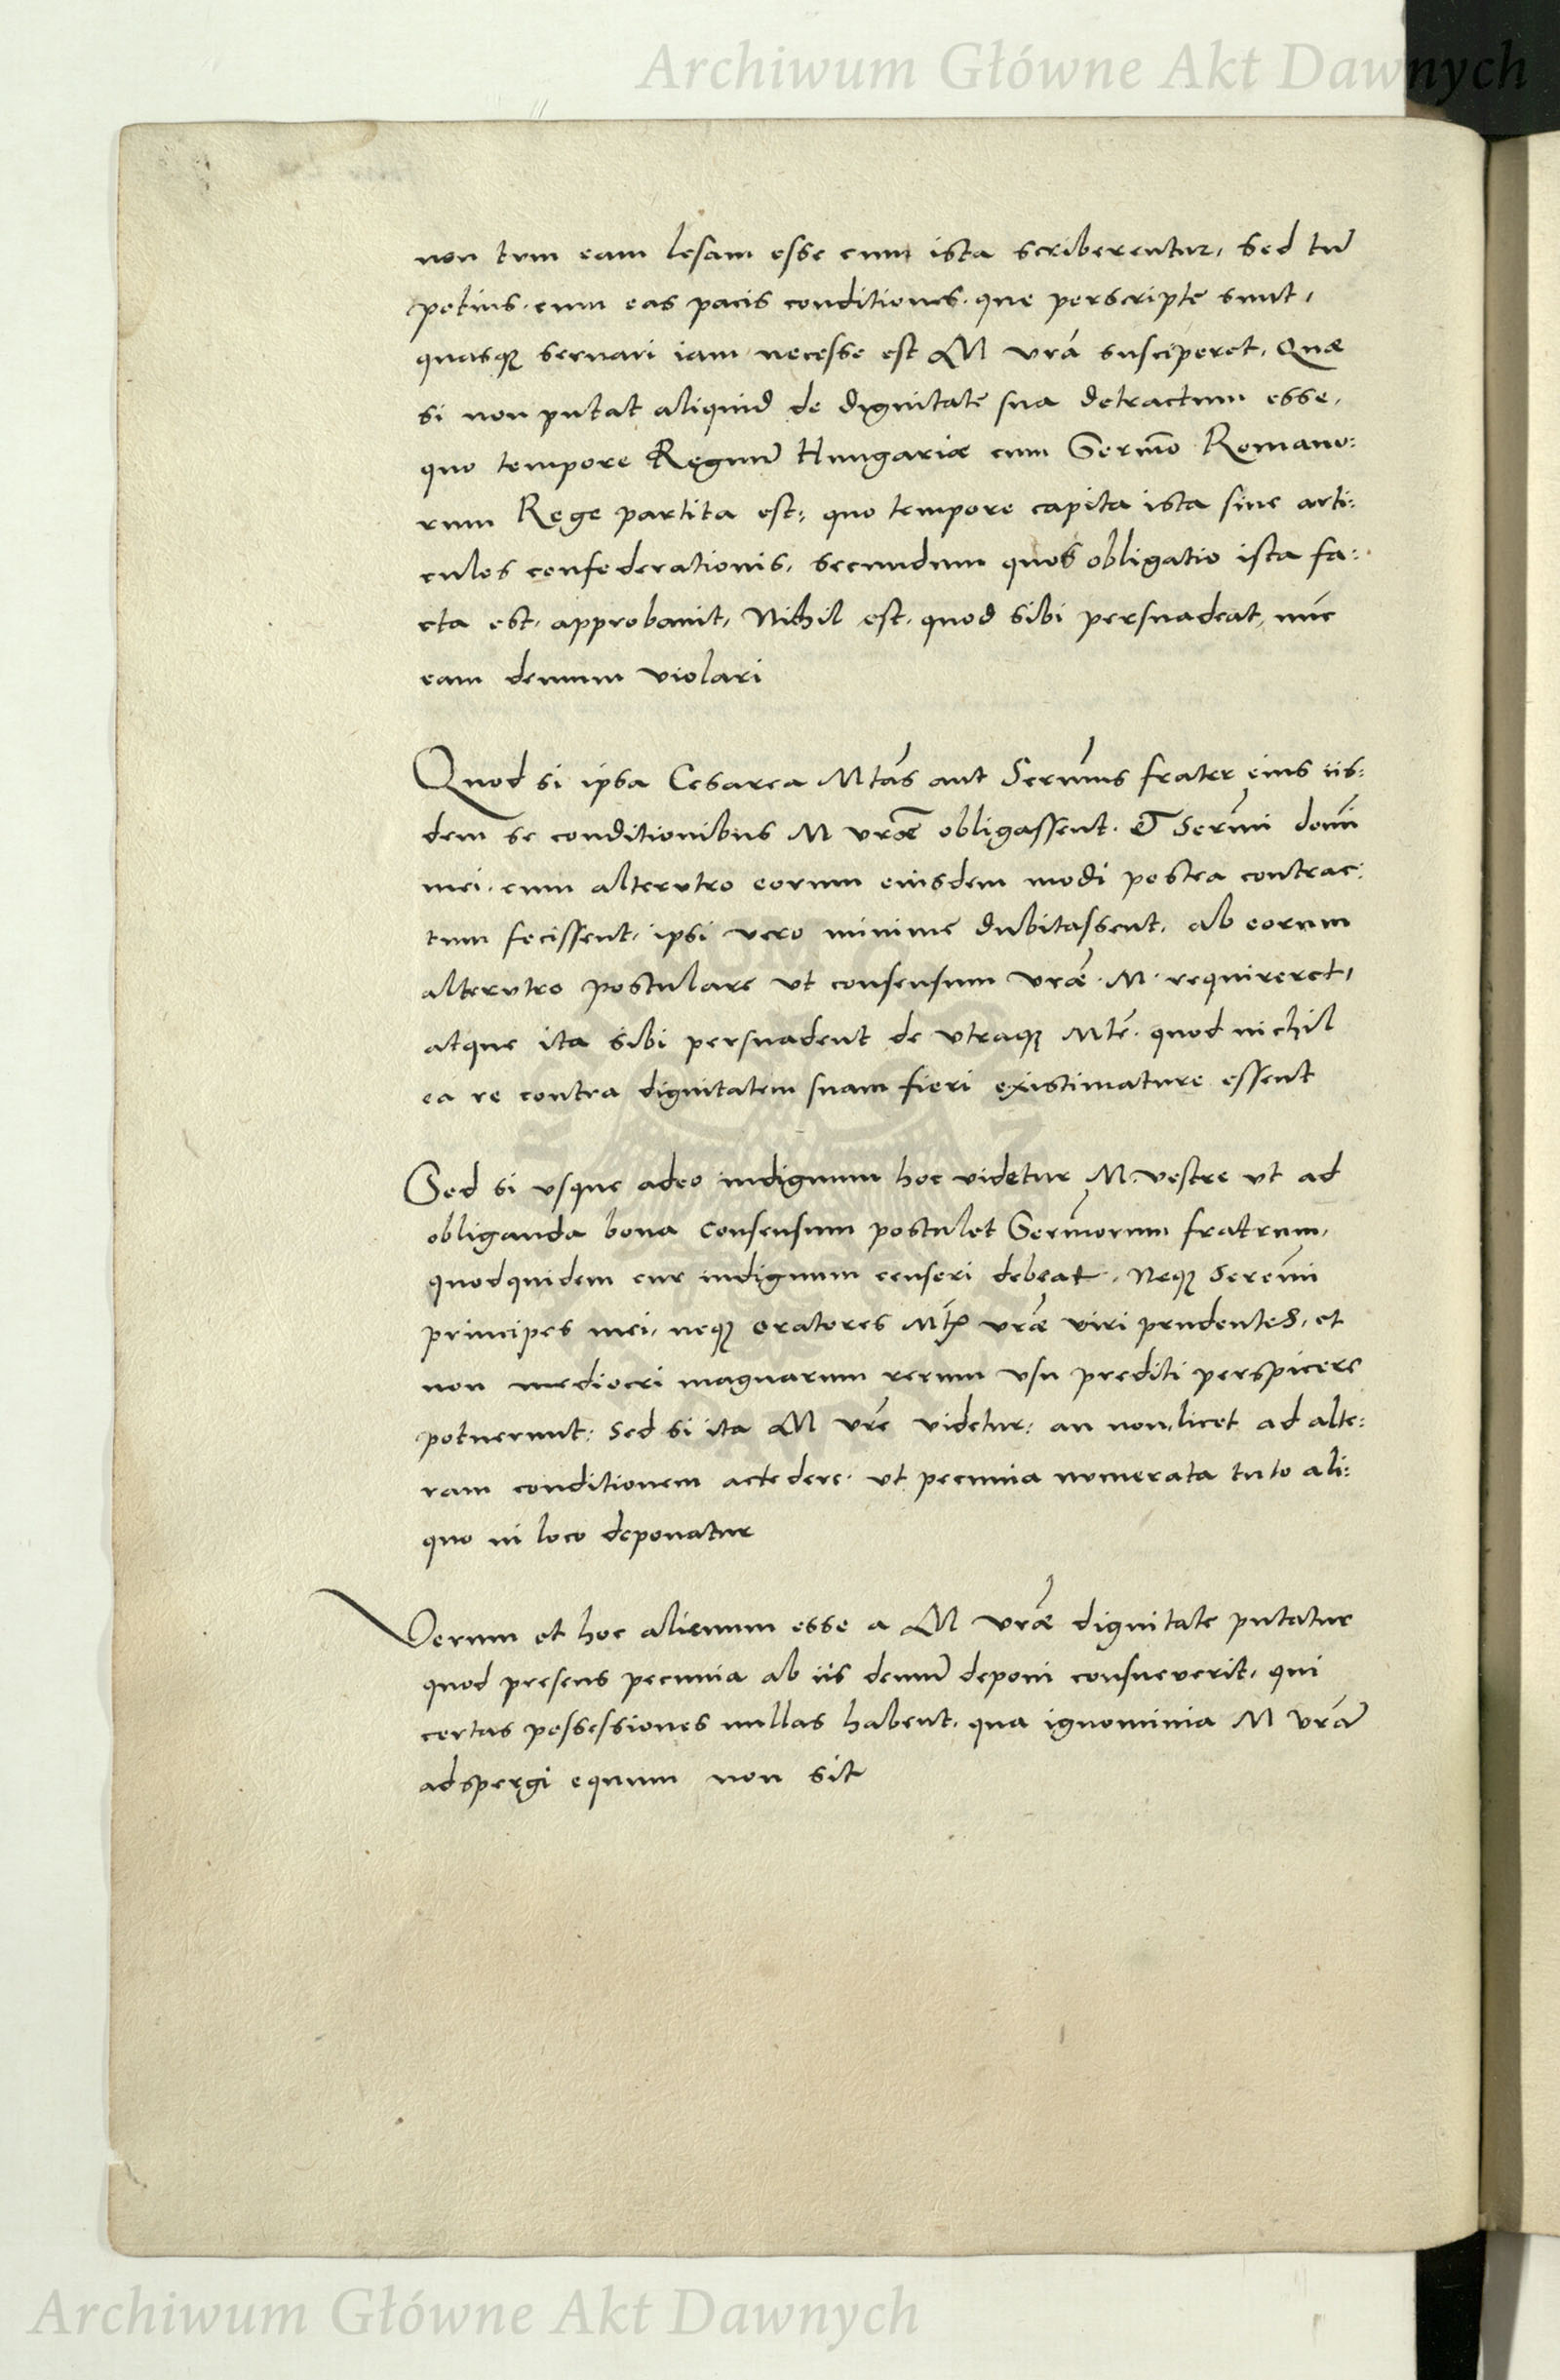 Archiwum Główne Akt Dawnych
non tum eam lesam esse cum ista scriberentur, Sed tu͂
potius. cum eas pacis conditiones. que perscripte sunt,
quasqꝫ servari iam necesse est M vr̃a susciperet, Quæ
si non putat aliquid de dignitate sua detractum esse,
quo tempore Regnu͂ Hungariæ cum Serm̃o Romano:
rum Rege partita est: quo tempore capita ista sive arti:
culos confederationis, secundum quos obligatio ista fa:
cta est, approbavit, Nihil est, quod sibi persuadeat, nu͂c
eam demum violari
Quod si ipsa Cesarea Mtãs aut Serm̃us frater eius iis:
dem se conditionibus M vr̃æ obligassent. Et Serm̃i dom̃i
mei. cum alterutro eorum eiusdem modi postea contrac:
tum fecissent, ipsi vero minime dubitassent, ab eorum
alterutro postulare ut consensum vr̃æ. M. requireret,
atque ita sibi persuadent de utraqꝫ Mtẽ. quod nichil
ea re contra dignitatem suam fieri existimature essent
Sed si usque adeo indignum hoc videtur M. vestre ut ad
obliganda bona consensum postulet Serm̃orum fratrum,
quodquidem cur indignum censeri debeat, Neqꝫ Serem̃i
principes mei, neqꝫ oratores Mtĩs vr̃æ viri prudentes, et
non mediocri magnarum rerum usu prediti perspicere
potuerunt: Sed si ita M vr̃e videtur: an non licet ad alte:
ram conditionem accedere. ut pecunia numerata tuto ali:
quo in loco deponatur
Verum et hoc alienum esse a M vr̃æ dignitate putatur
quod presens pecunia ab iis demu͂ deponi consueverit, qui
certas possessiones nullas habent, qua ignominia M vr̃a͂
adspergi equum non sit
Archiwum Główne Akt Dawnych